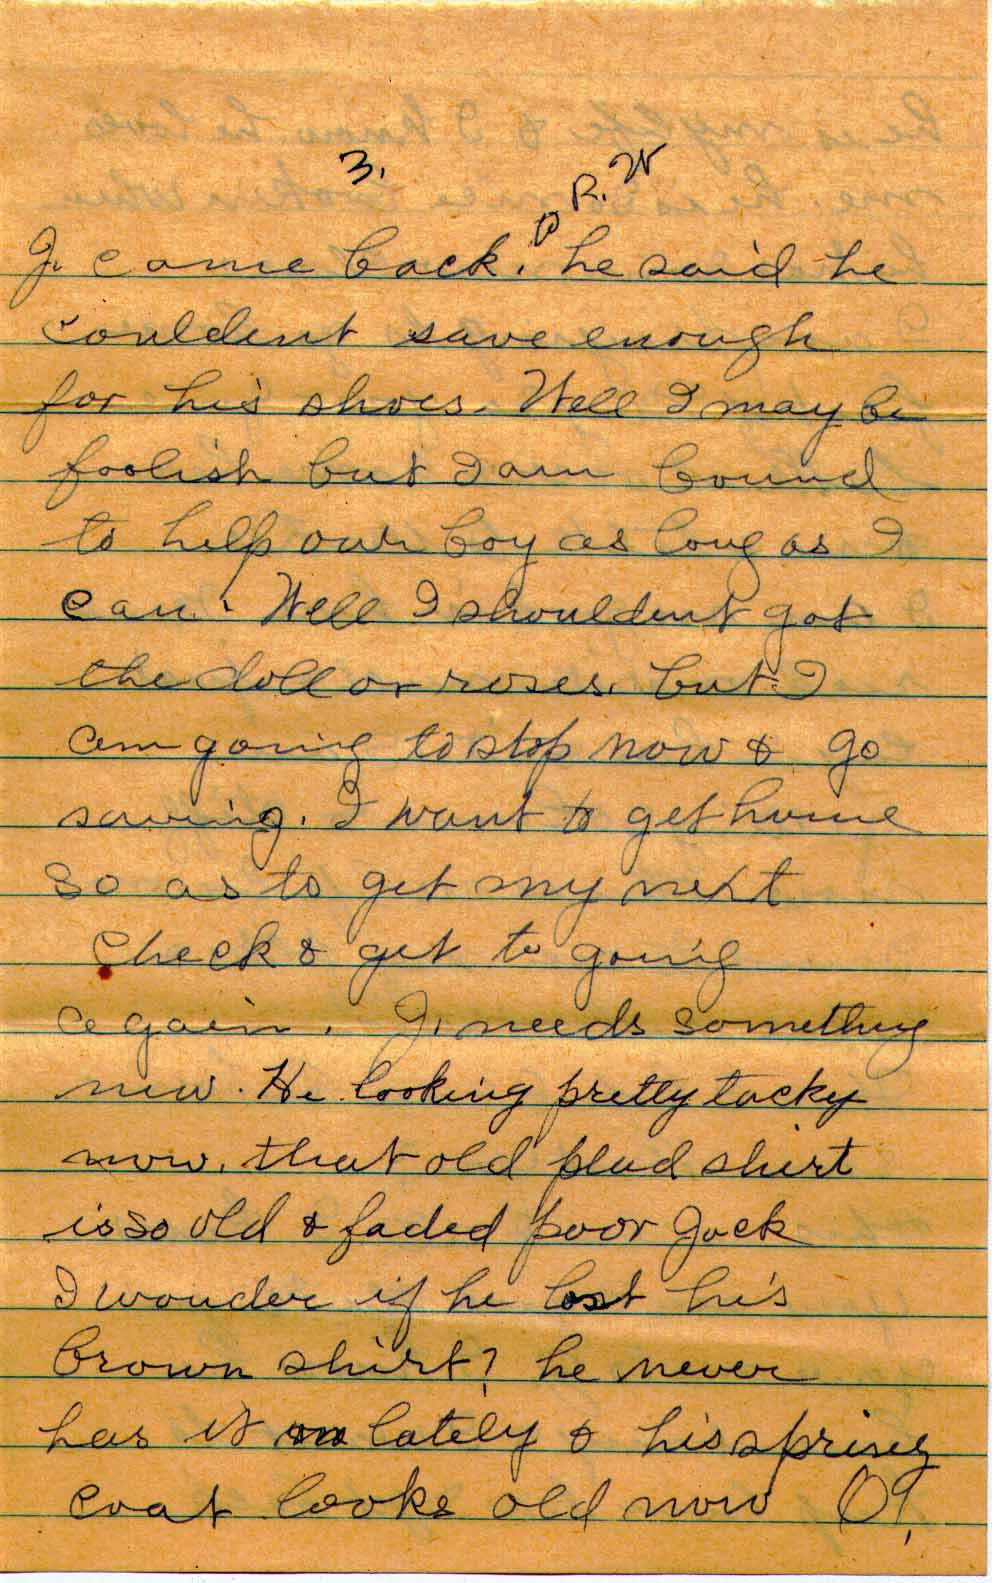 3.
to R. W
J. came back. he said he
couldent save enough
for his shoes. Well I may be
foolish but I am bound
to help our boy as long as I
can. Well I shouldent got
the doll or roses. but I
am going to stop now & go
saving. I want to get home
so as to get my next
check & get to going
again. J. needs something
new. He looking pretty tacky
now. that old plad shirt
is so old & faded poor Jack
I wonder if he lost his
brown shirt? he never
has it on lately & his spring
coat looks old now O!